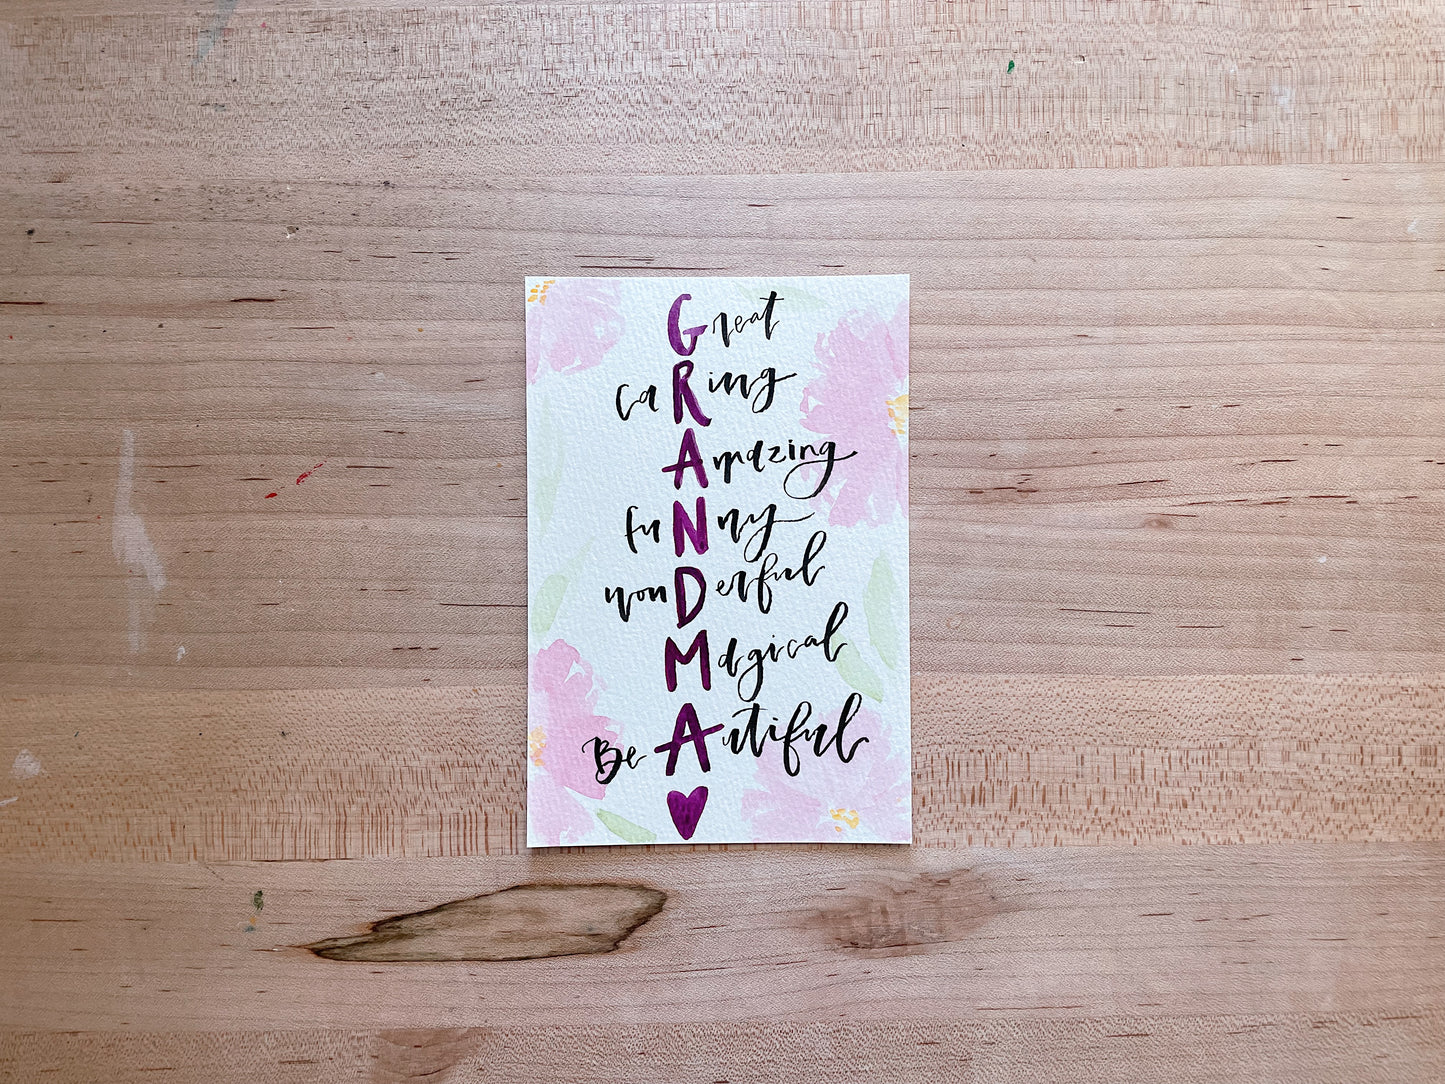 Great
CaRing
Amazing
fuNny
wonDerful
Magical
BeAutiful